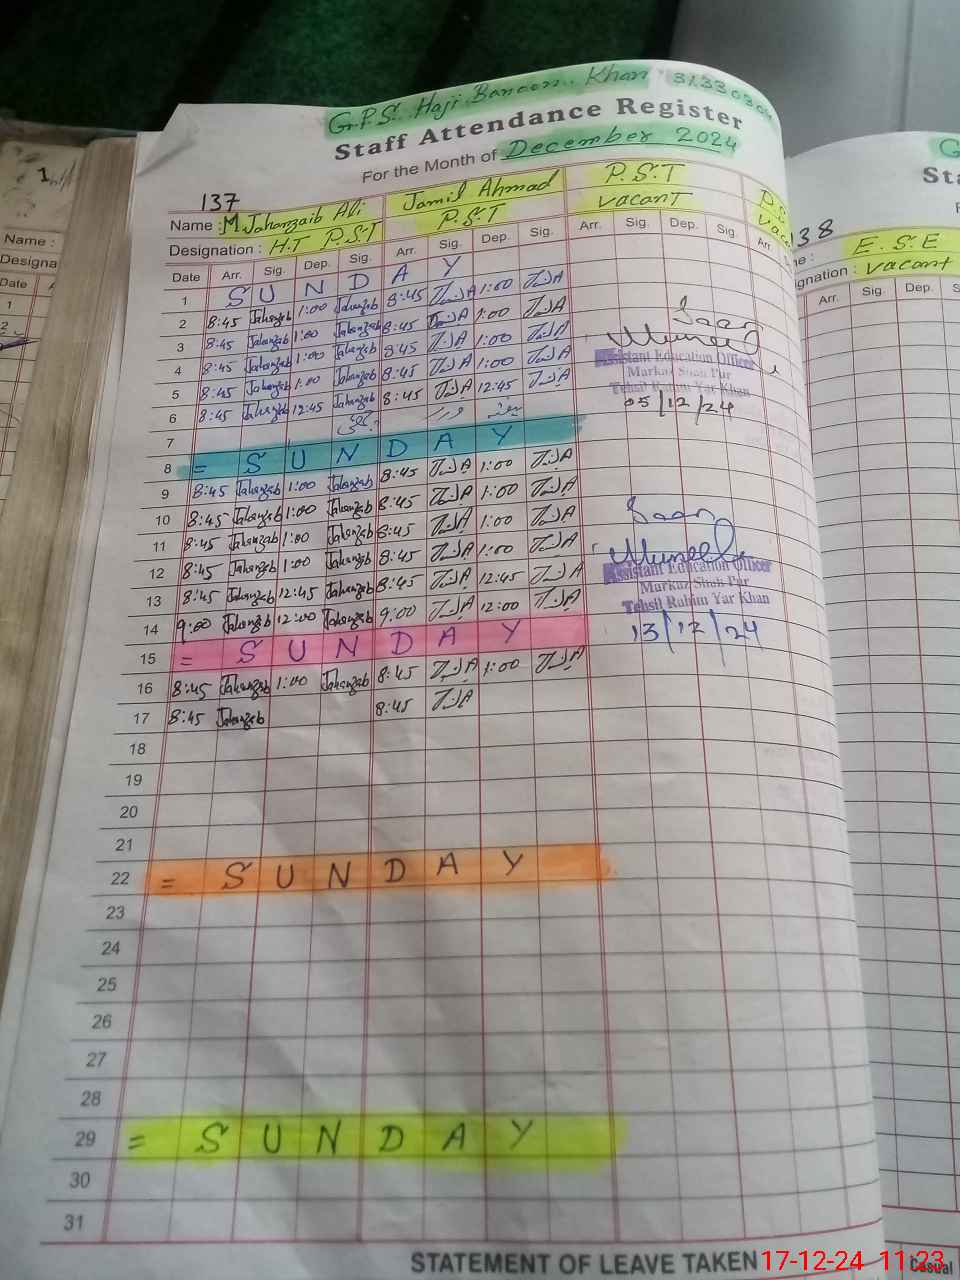 G.P.S. Haji Banoon Khan
Staff Attendance Register
For the Month of December 2024
137
Name : M Jahanzaib Ali Jamil Ahmad P.S.T
Designation : H.T P.S.T P.S.T vacanT
Date Arr. Sig. Dep. Sig. Arr. Sig. Dep. Sig. Arr. Sig. Dep. Sig. Arr.
1 S U N D A Y
2 8:45 Jahanzab 1:00 Jahanzab 8:45 1:00
3 8:45 Jahanzab 1:00 Jahanzab 8:45 1:00
4 8:45 Jahanzab 1:00 Jahanzab 8:45 1:00
5 8:45 Jahanzab 1:00 Jahanzab 8:45 1:00
6 8:45 Jahanzab 12:45 Jahanzab 8:45 12:45
7
8 = S U N D A Y
9 8:45 Jahanzab 1:00 Jahanzab 8:45 1:00
10 8:45 Jahanzab 1:00 Jahanzab 8:45 1:00
11 8:45 Jahanzab 1:00 Jahanzab 8:45 1:00
12 8:45 Jahanzab 1:00 Jahanzab 8:45 1:00
13 8:45 Jahanzab 12:45 Jahanzab 8:45 12:45
14 9:00 Jahanzab 12:00 Jahanzab 9:00 12:00
15 = S U N D A Y
16 8:45 Jahanzab 1:00 Jahanzab 8:45 1:00
17 8:45 Jahanzab 8:45
18
19
20
21
22 = S U N D A Y
23
24
25
26
27
28
29 = S U N D A Y
30
31
Assistant Education Officer
Markaz Shah Pur
Tehsil Rahim Yar Khan
05/12/24
Assistant Education Officer
Markaz Shah Pur
Tehsil Rahim Yar Khan
13/12/24
STATEMENT OF LEAVE TAKEN
Name :
Date
1
138
E.S.E
vacant
Arr. Sig. Dep.
Casual
17-12-24 11:23